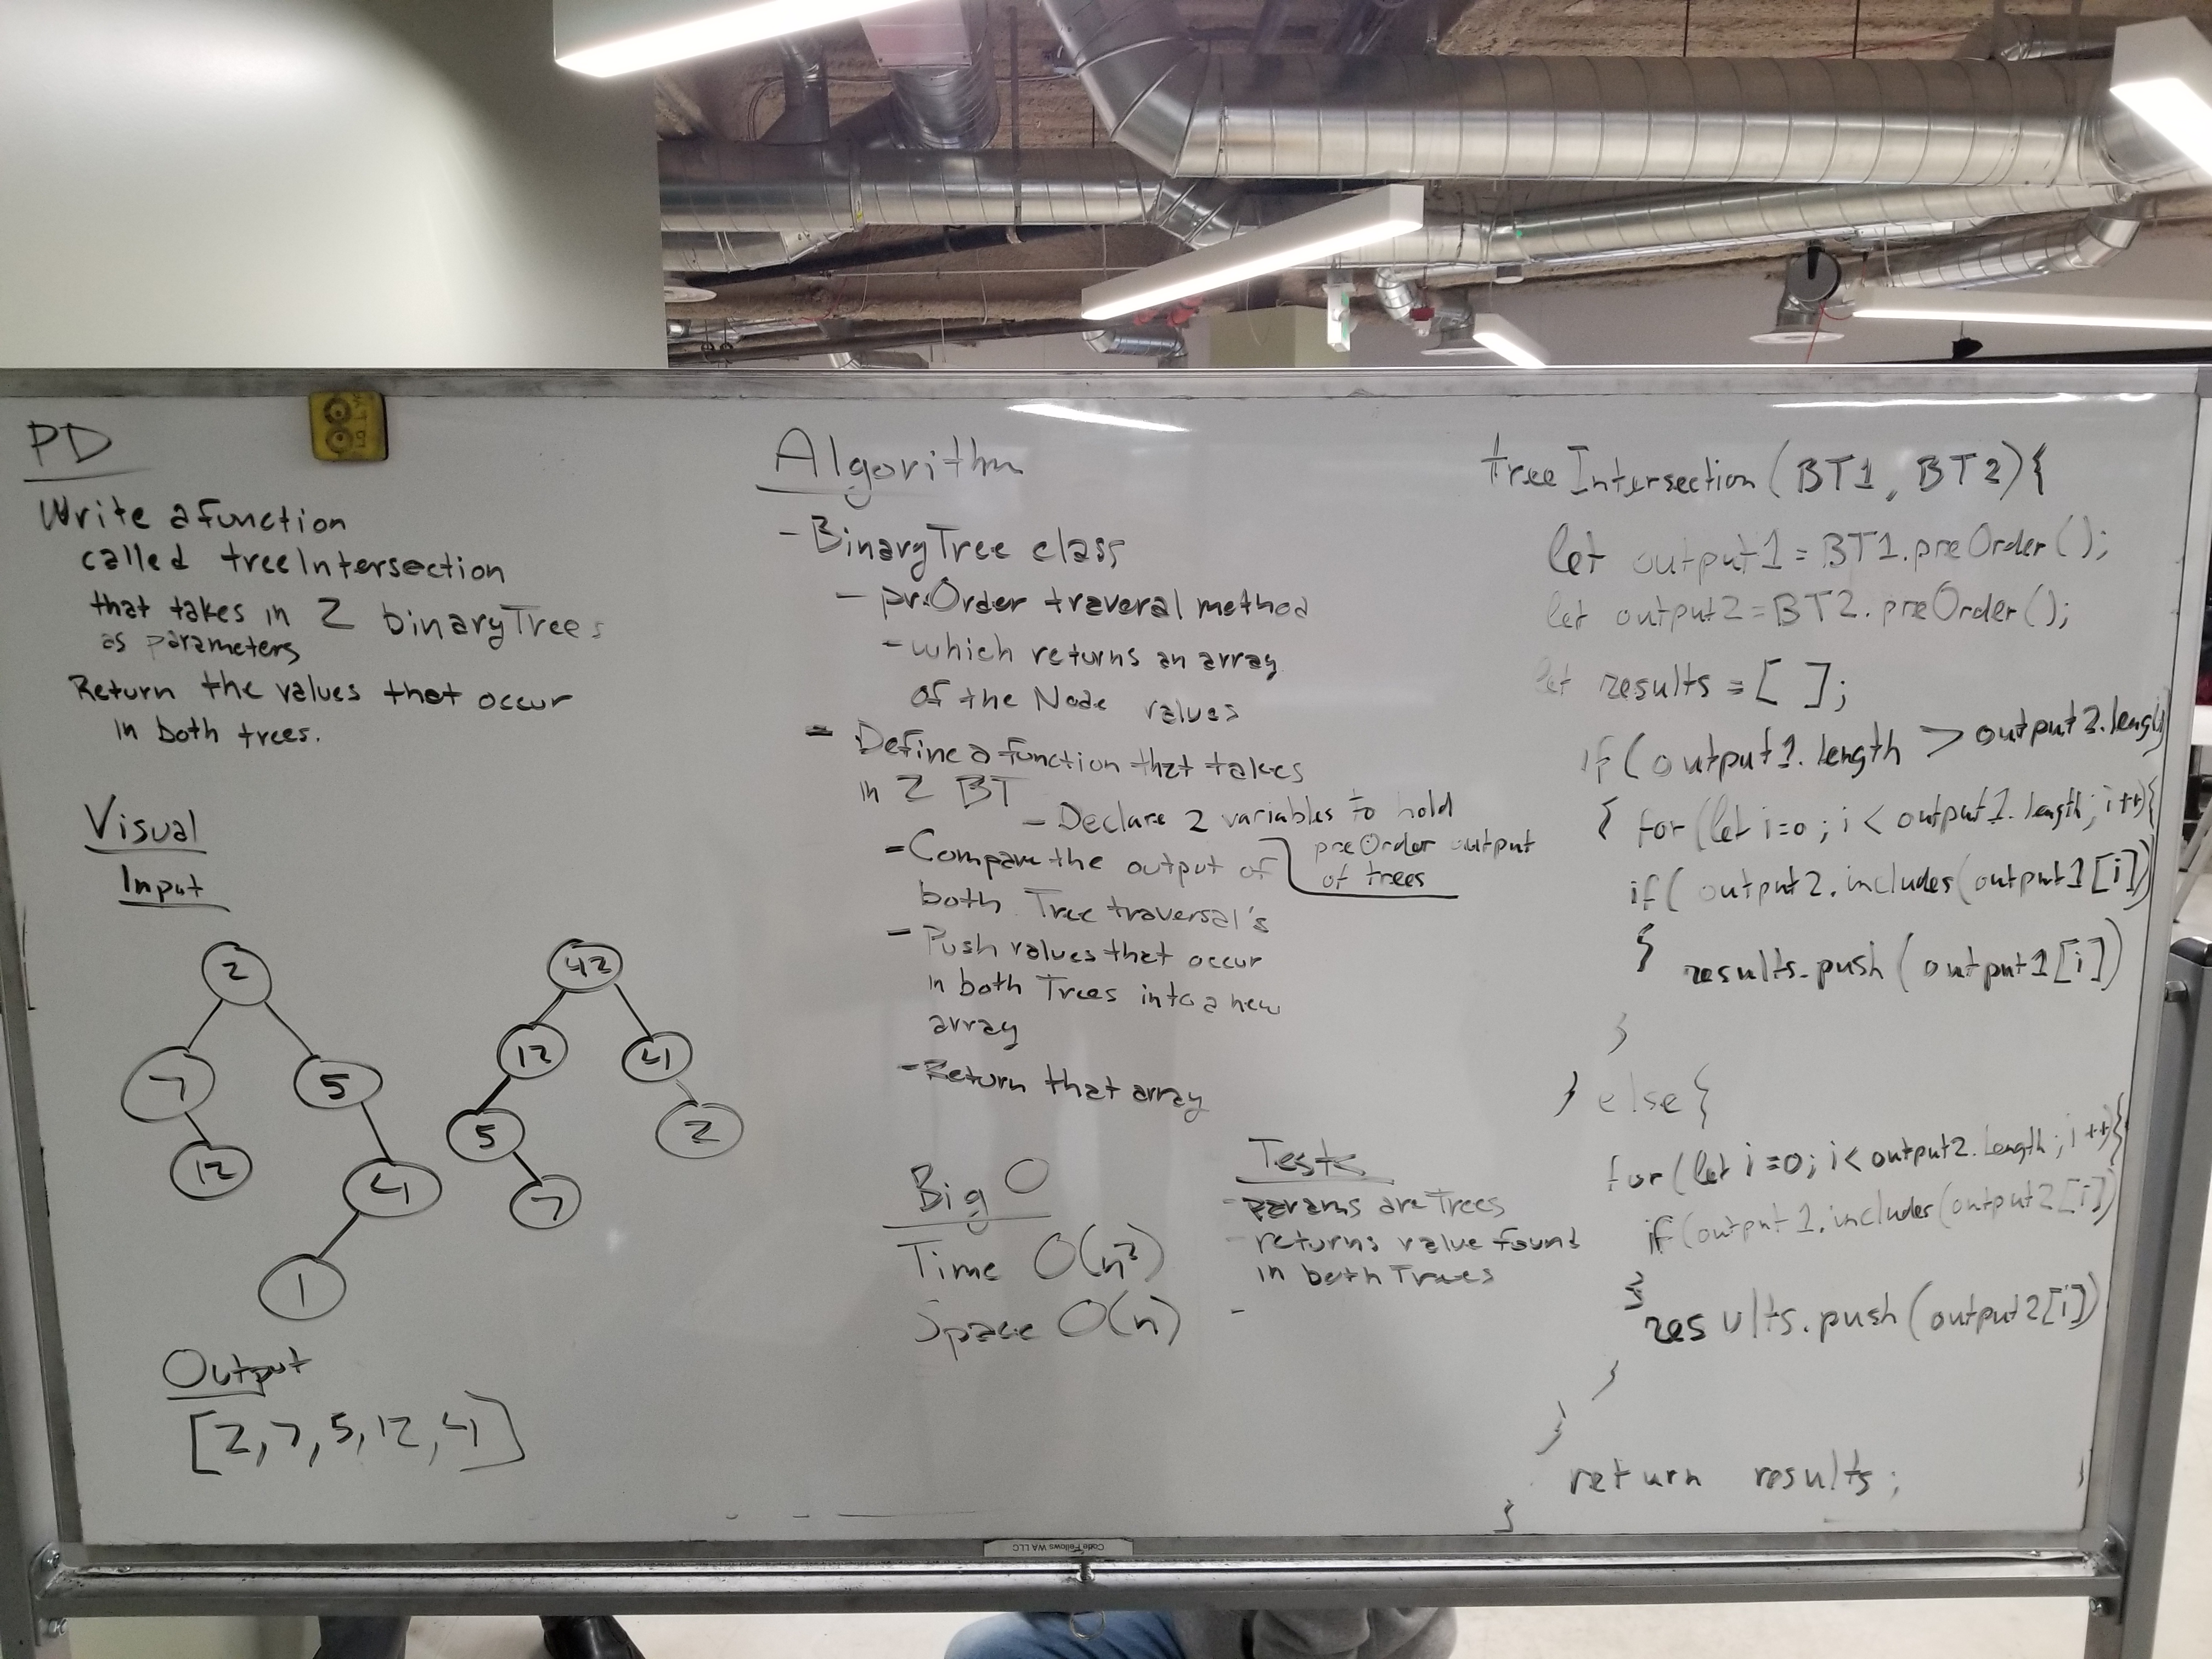 PD
Write a function
called treeIntersection
that takes in 2 binaryTrees
as parameters
Return the values that occur
in both trees.
Visual
Input
2
7
5
12
4
1
42
12
4
5
2
7
Output
[2,7,5,12,4]
Algorithm
- BinaryTree class
- preOrder traveral method
- which returns an array
of the Node values
- Define a function that takes
in 2 BT
- Declare 2 variables to hold
preOrder output
of trees
- Compare the output of
both Tree traversal's
- Push values that occur
in both Trees into a new
array
- Return that array
Big O
Time O(n²)
Space O(n)
Tests
- params are Trees
- returns value found
in both Trees
-
treeIntersection(BT1, BT2){
let output1 = BT1.preOrder();
let output2 = BT2.preOrder();
let results = [ ];
if( output1.length > output2.length)
{ for(let i=0; i < output1.length; i++){
if( output2.includes(output1[i])
{ results.push(output1[i])
}
} else {
for(let i=0; i< output2.length; i++){
if(output1.includes(output2[i])
{
results.push(output2[i])
}
}
return results;
}
Code Fellows WA LLC